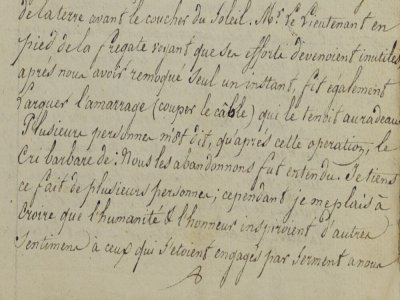 de la terre avant le coucher du Soleil. Mr. le Lieutenant en
pied de la fregate voyant que ses efforts devenoient inutiles
aprés nous avoir remoqué seul un instant, fit également
larguer l'amarrage (couper le cable) qui le tenoit au radeau
Plusieurs personnes m'ont dit, qu'aprés cette operation, le
Cri barbare de: Nous les abandonnons fut entendu. Je tiens
ce fait de plusieurs personnes; cependant je me plais à
croire que l'humanité & l'honneur inspiroient d'autres
Sentimens à ceux qui s'etoient engagés par serment a nous